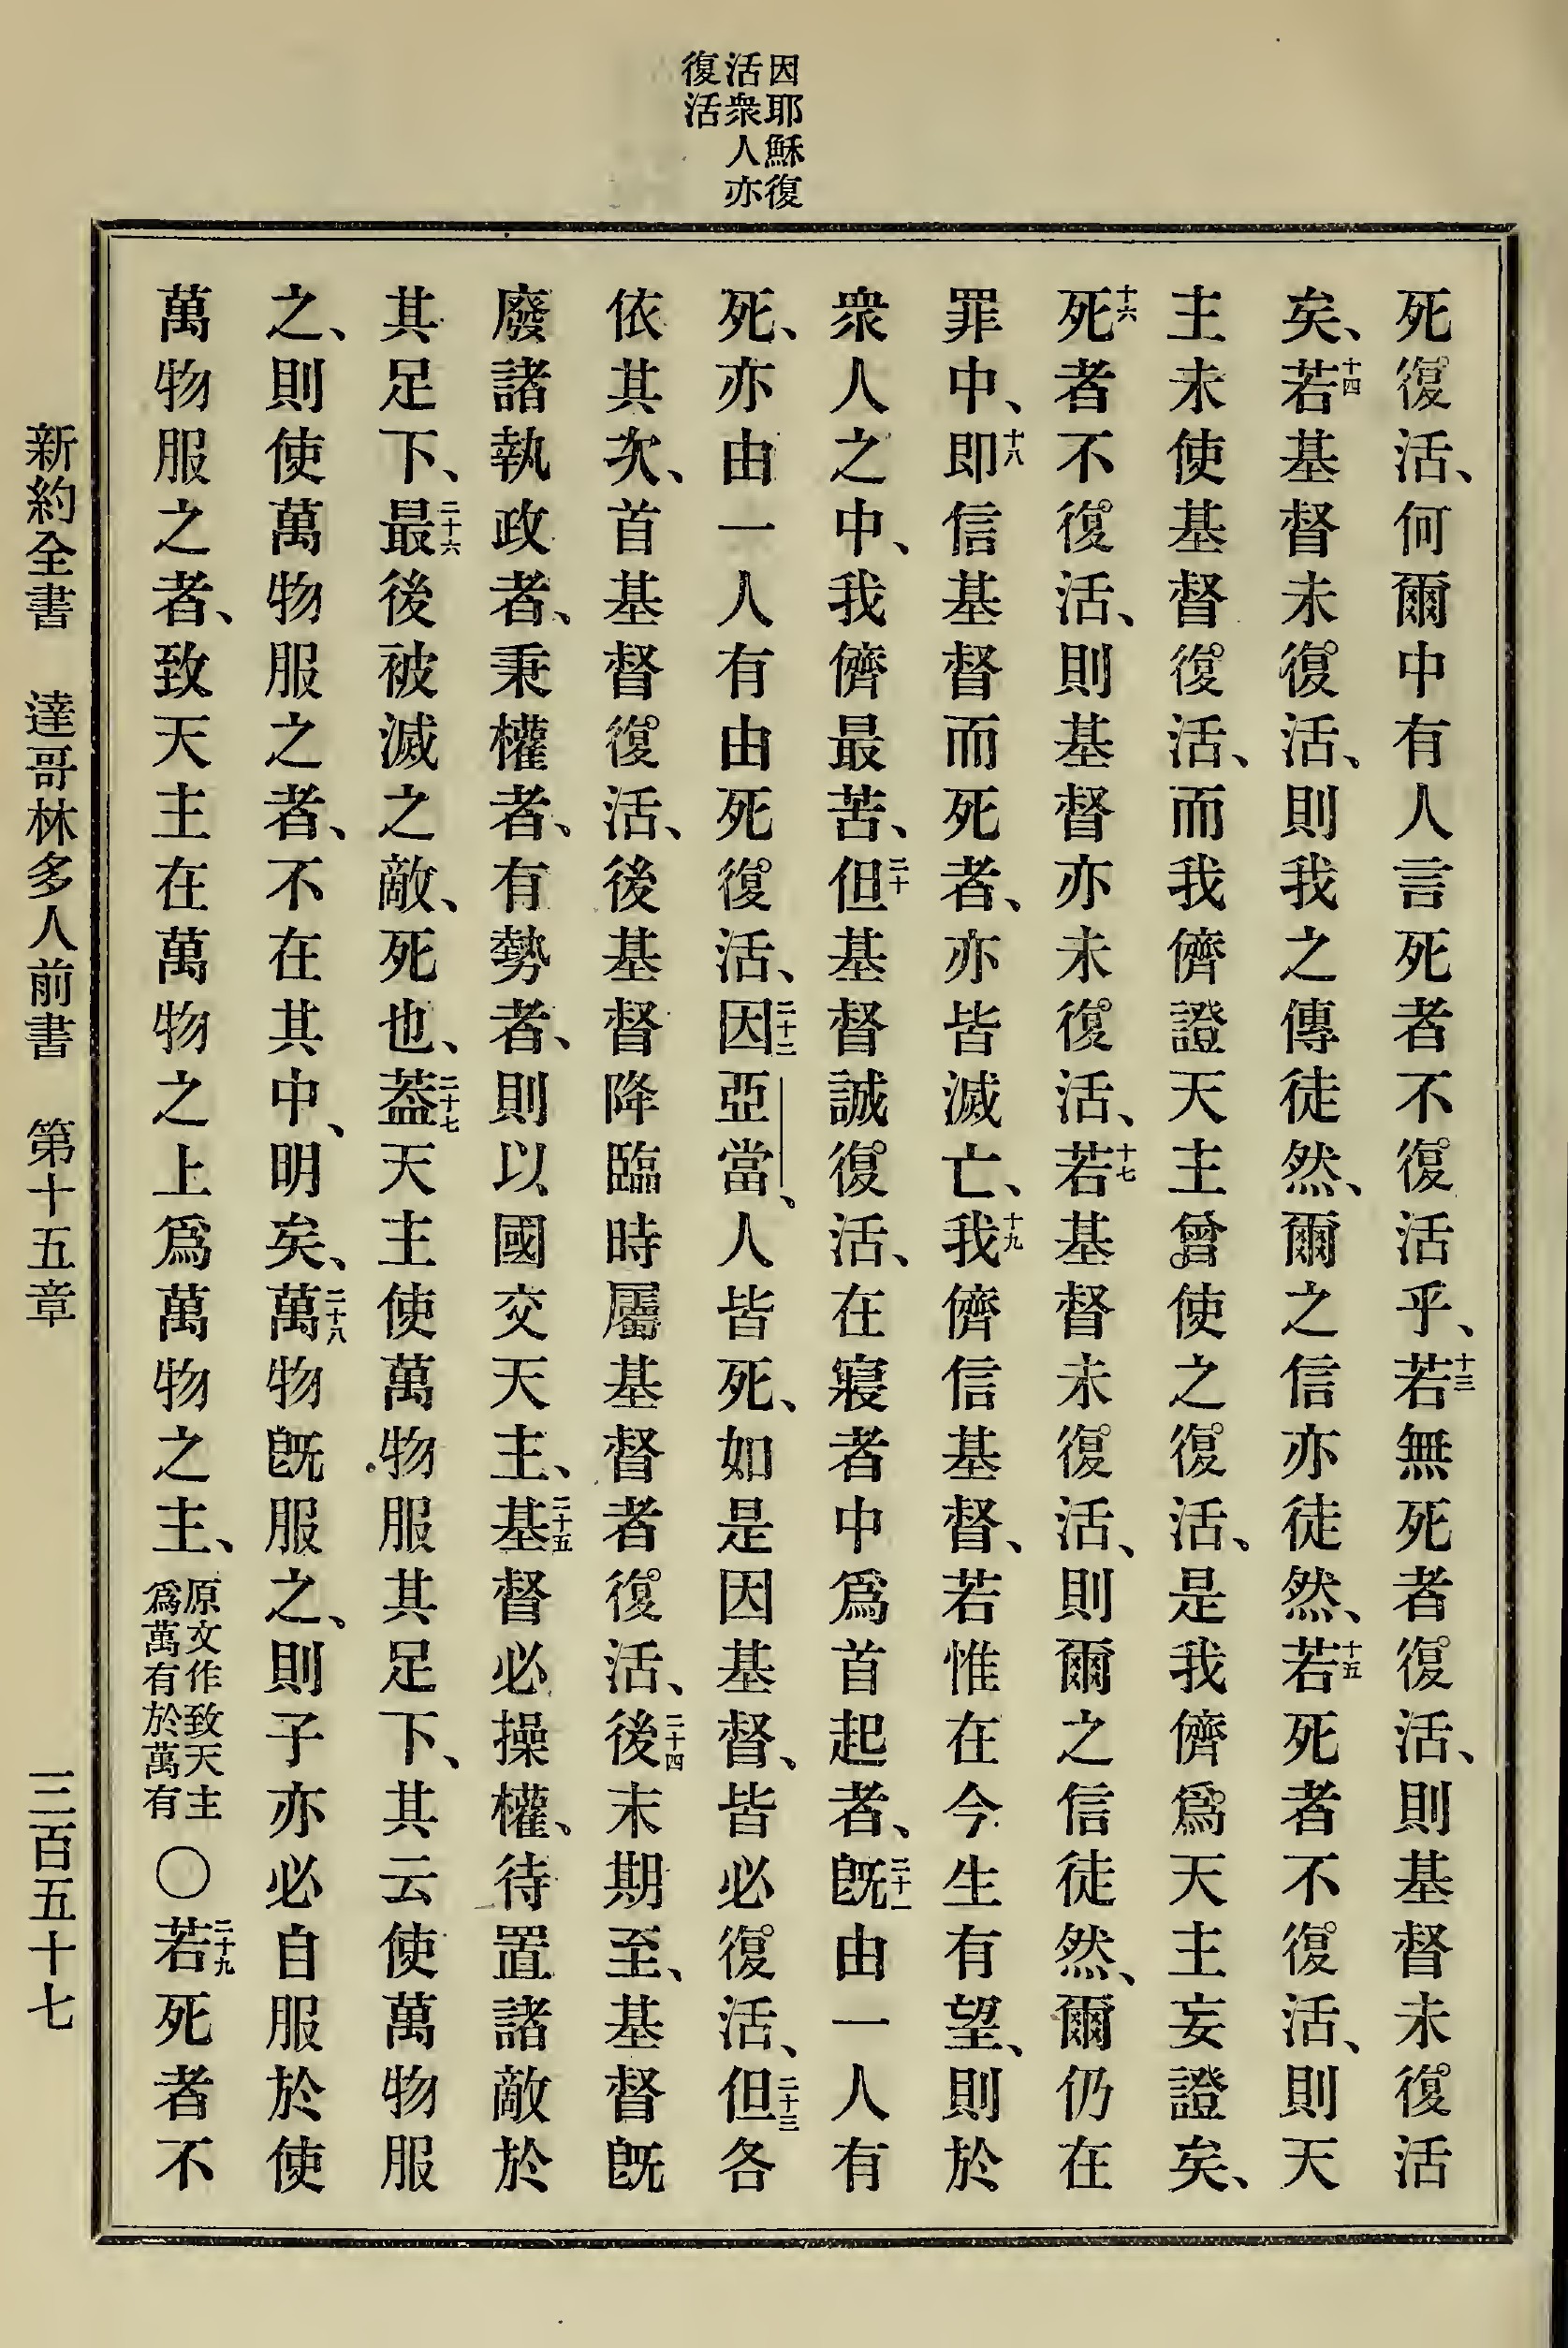 因耶穌復
活衆人亦
復活
死復活、何爾中有人言死者不復活乎、十三若無死者復活、則基督未復活
矣、十四若基督未復活、則我之傳徒然、爾之信亦徒然、十五若死者不復活、則天
主未使基督復活、而我儕證天主曾使之復活、是我儕爲天主妄證矣、
十六死者不復活、則基督亦未復活、十七若基督未復活、則爾之信徒然、爾仍在
罪中、十八即信基督而死者、亦皆滅亡、十九我儕信基督、若惟在今生有望、則於
衆人之中、我儕最苦、二十但基督誠復活、在寢者中爲首起者、二十一旣由一人有
死、亦由一人有由死復活、二十二因亞當、人皆死、如是因基督、皆必復活、二十三但各
依其次、首基督復活、後基督降臨時屬基督者復活、二十四後末期至、基督旣
廢諸執政者、秉權者、有勢者、則以國交天主、二十五基督必操權、待置諸敵於
其足下、二十六最後被滅之敵、死也、二十七蓋天主使萬物服其足下、其云使萬物服
之、則使萬物服之者、不在其中、明矣、二十八萬物旣服之、則子亦必自服於使
萬物服之者、致天主在萬物之上爲萬物之主、原文作致天主爲萬有於萬有〇二十九若死者不
新約全書 達哥林多人前書 第十五章 三百五十七